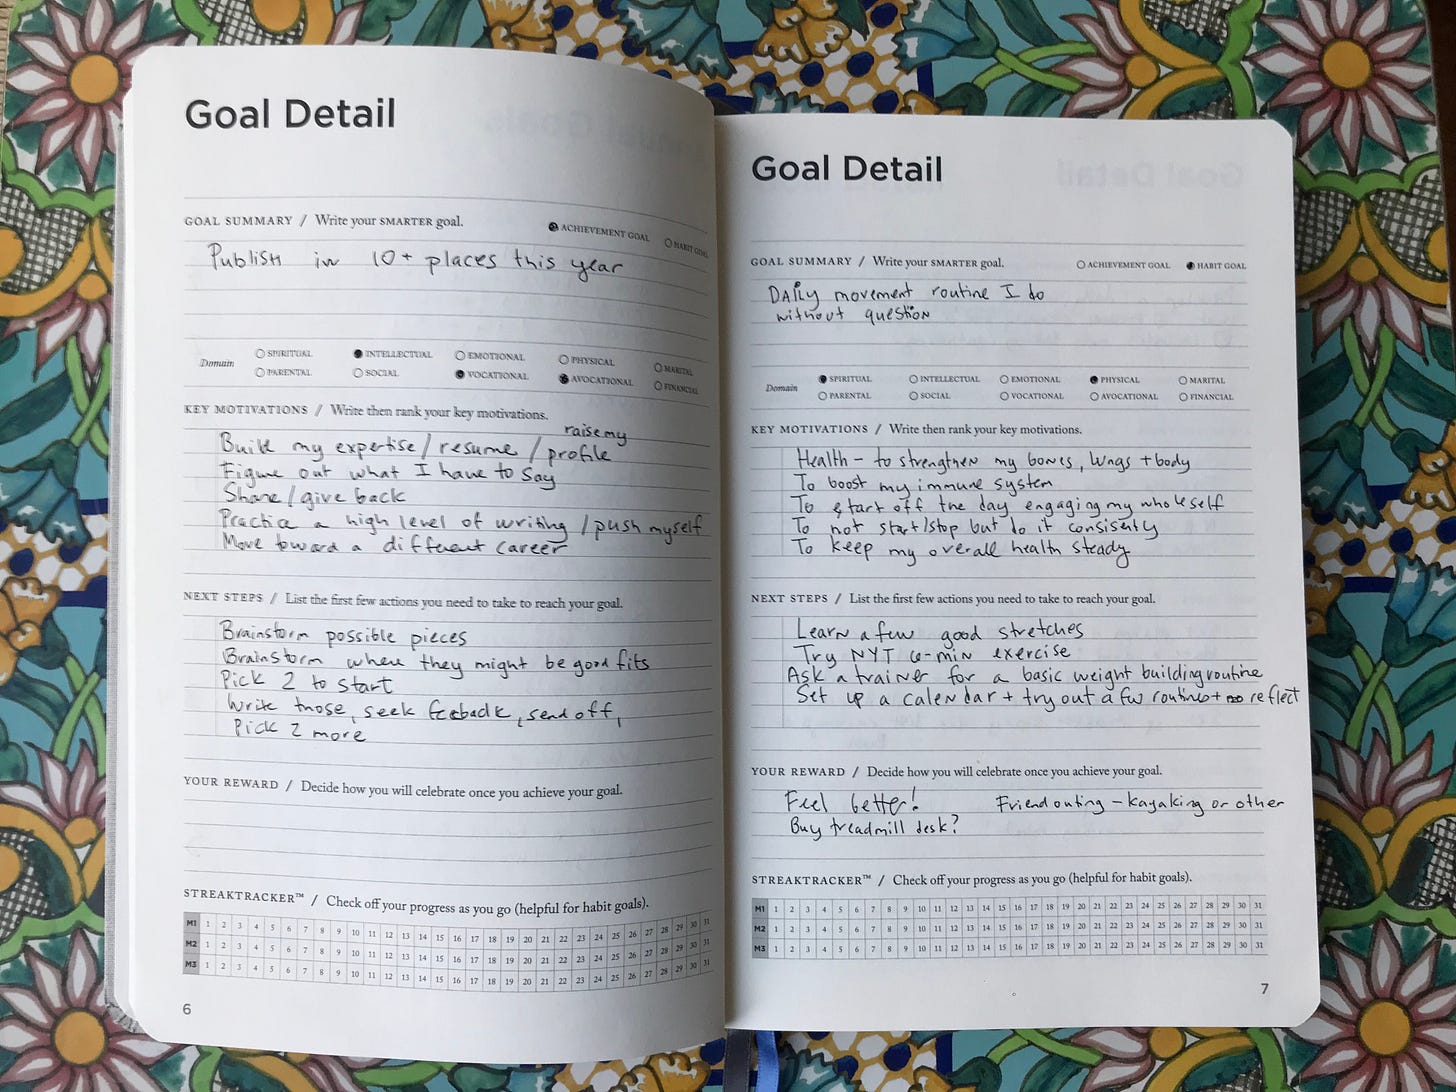 Goal Detail
GOAL SUMMARY / Write your SMARTER goal.
ACHIEVEMENT GOAL HABIT GOAL
Publish in 10+ places this year
Domain
SPIRITUAL INTELLECTUAL EMOTIONAL PHYSICAL MARITAL
PARENTAL SOCIAL VOCATIONAL AVOCATIONAL FINANCIAL
KEY MOTIVATIONS / Write then rank your key motivations.
raise my
Build my expertise / resume / profile
Figure out what I have to say
Share / give back
Practice a high level of writing / push myself
Move toward a different career
NEXT STEPS / List the first few actions you need to take to reach your goal.
Brainstorm possible pieces
Brainstorm where they might be good fits
Pick 2 to start
Write those, seek feeback, send off,
Pick 2 more
YOUR REWARD / Decide how you will celebrate once you achieve your goal.
STREAKTRACKER™ / Check off your progress as you go (helpful for habit goals).
M1 1 2 3 4 5 6 7 8 9 10 11 12 13 14 15 16 17 18 19 20 21 22 23 24 25 26 27 28 29 30 31
M2 1 2 3 4 5 6 7 8 9 10 11 12 13 14 15 16 17 18 19 20 21 22 23 24 25 26 27 28 29 30 31
M3 1 2 3 4 5 6 7 8 9 10 11 12 13 14 15 16 17 18 19 20 21 22 23 24 25 26 27 28 29 30 31
6
Goal Detail
GOAL SUMMARY / Write your SMARTER goal.
ACHIEVEMENT GOAL HABIT GOAL
DAily movement routine I do
without question
Domain
SPIRITUAL INTELLECTUAL EMOTIONAL PHYSICAL MARITAL
PARENTAL SOCIAL VOCATIONAL AVOCATIONAL FINANCIAL
KEY MOTIVATIONS / Write then rank your key motivations.
Health - to strengthen my bones, lungs + body
To boost my immune system
To start off the day engaging my whole self
To not start/stop but do it consistently
To keep my overall health steady
NEXT STEPS / List the first few actions you need to take to reach your goal.
Learn a few good stretches
Try NYT 6-min exercise
Ask a trainer for a basic weight building routine
Set up a calendar + try out a few routines + reflect
YOUR REWARD / Decide how you will celebrate once you achieve your goal.
Feel better! Friend outing - kayaking or other
Buy treadmill desk?
STREAKTRACKER™ / Check off your progress as you go (helpful for habit goals).
M1 1 2 3 4 5 6 7 8 9 10 11 12 13 14 15 16 17 18 19 20 21 22 23 24 25 26 27 28 29 30 31
M2 1 2 3 4 5 6 7 8 9 10 11 12 13 14 15 16 17 18 19 20 21 22 23 24 25 26 27 28 29 30 31
M3 1 2 3 4 5 6 7 8 9 10 11 12 13 14 15 16 17 18 19 20 21 22 23 24 25 26 27 28 29 30 31
7